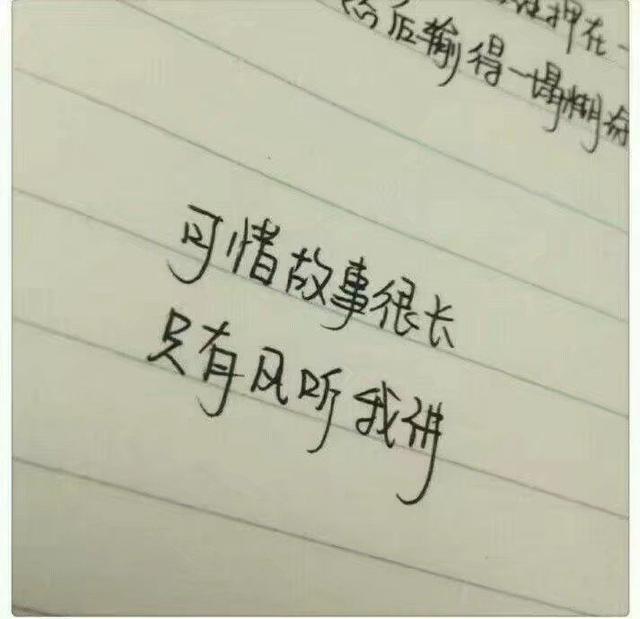 押在一
然后输得一塌糊涂
可惜故事很长
只有风听我讲